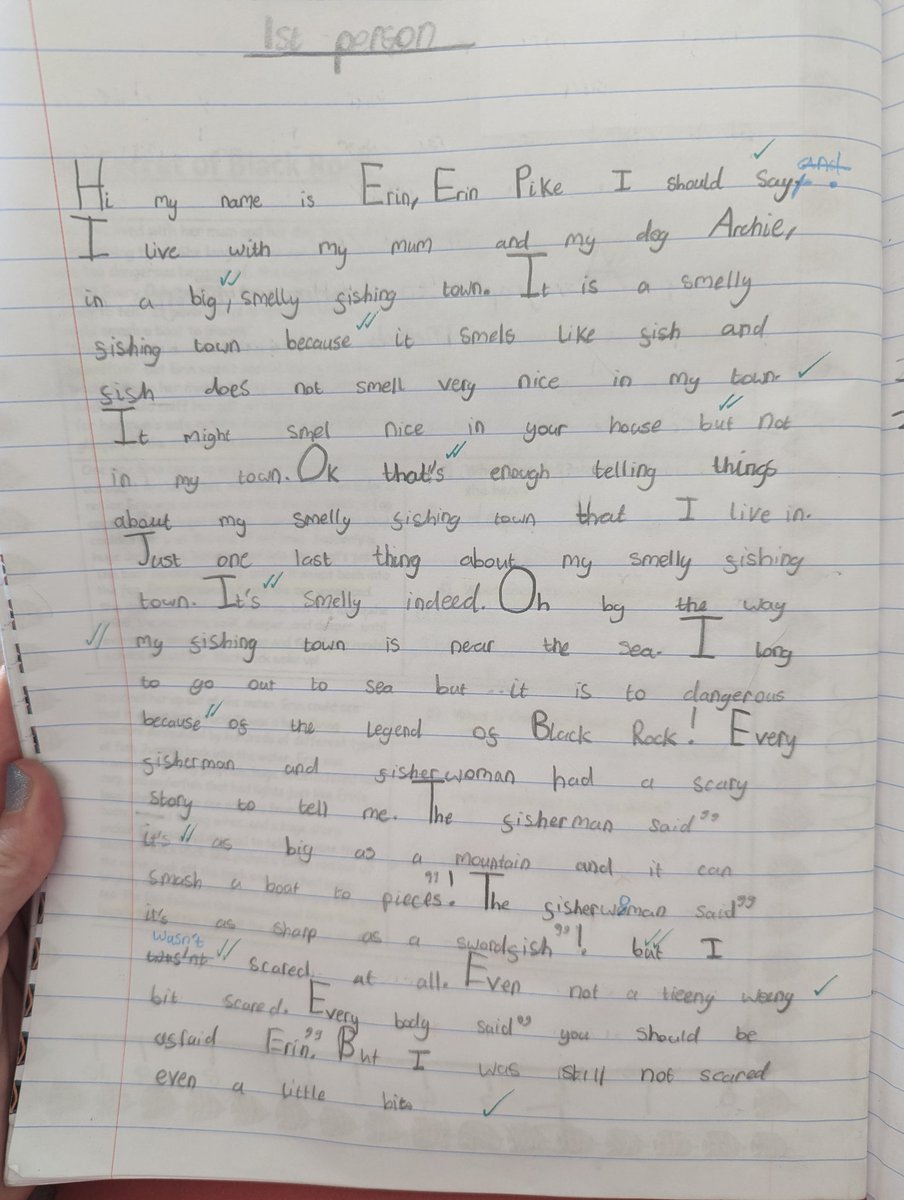 1st person
Hi my name is Erin, Erin Pike I should say, and .
I live with my mum and my dog Archie,
in a big, smelly fishing town. It is a smelly
fishing town because it smels like fish and
fish does not smell very nice in my town.
It might smel nice in your house but not
in my town. Ok that's enough telling things
about my smelly fishing town that I live in.
Just one last thing about my smelly fishing
town. It's smelly indeed. Oh by the way
my fishing town is near the sea. I long
to go out to sea but it is to dangerous
because of the legend of Black Rock! Every
fisherman and fisherwoman had a scary
story to tell me. The fisherman said”
it's as big as a mountain and it can
smash a boat to pieces”! The fisherwoman said”
it's as sharp as a swordfish”! but I
wasn't
was'nt scared at all. Even not a tieeny weeny
bit scared. Every body said” you should be
asfaid Erin.” But I was still not scared
even a little bit.